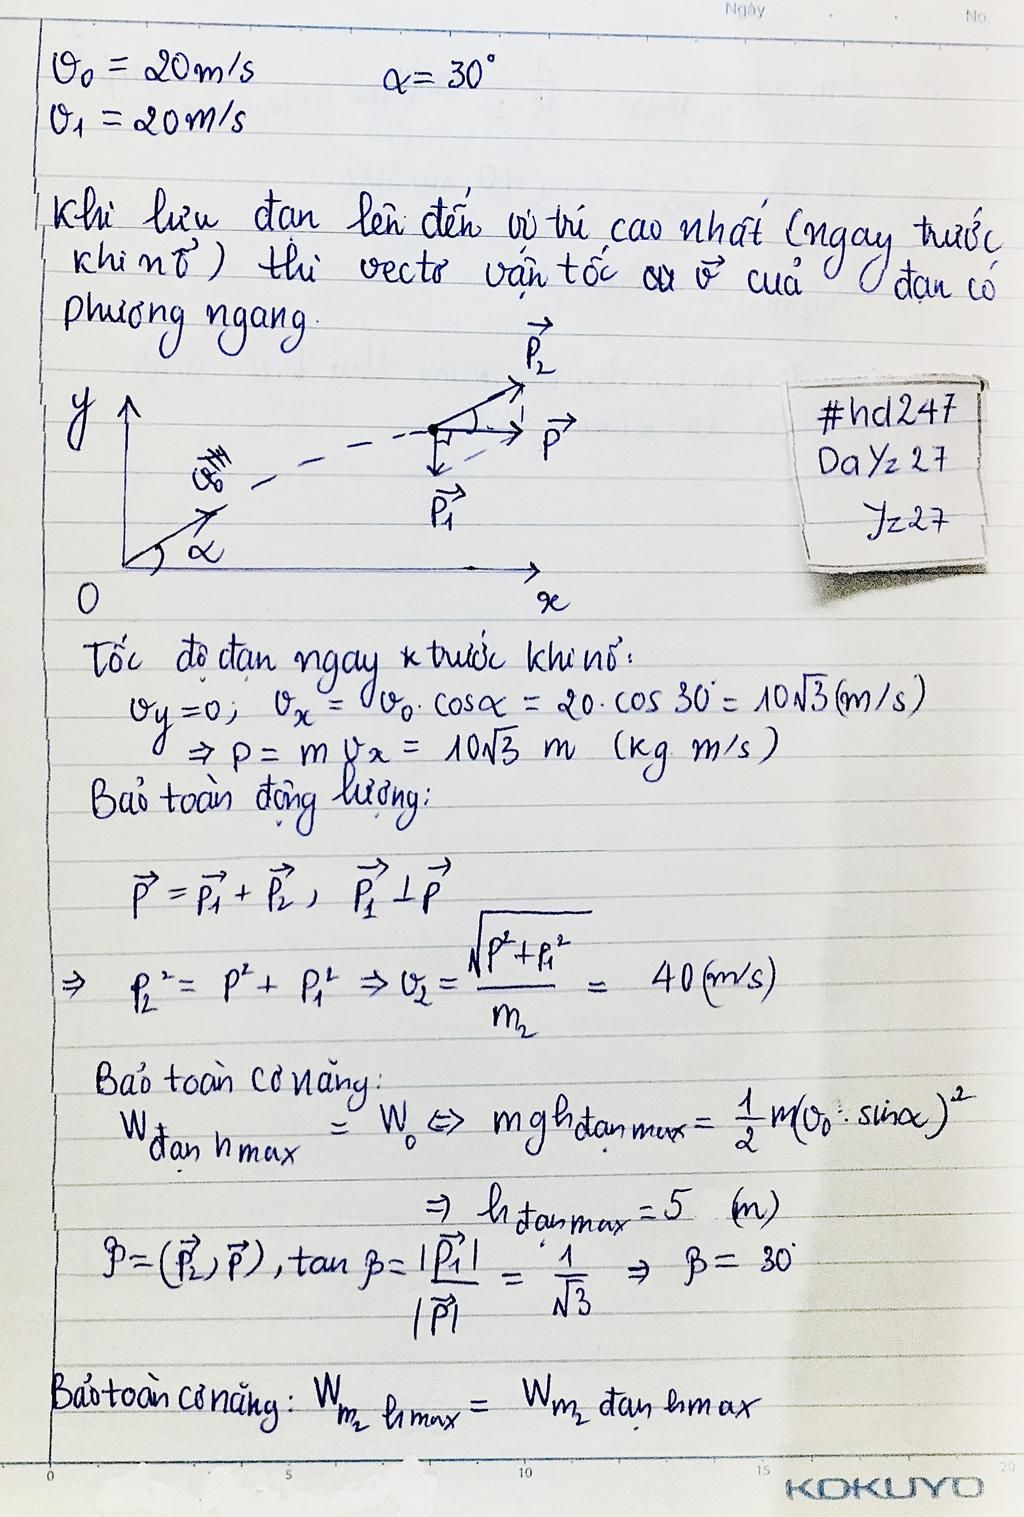 Ngày No.
v₀ = 20m/s α = 30°
v₁ = 20m/s
Khi lựu đạn lên đến vị trí cao nhất (ngay trước
khi nổ) thì vectơ vận tốc v⃗ của đạn có
phương ngang.
y P⃗₂
P⃗
P⃗₁
v⃗₀
α
O x
#hd247
DaYz27
Yz27
Tốc độ đạn ngay trước khi nổ:
v_y = 0; v_x = v₀. cosα = 20. cos 30° = 10√3 (m/s)
⇒ p = m v_x = 10√3 m (kg m/s)
Bảo toàn động lượng:
P⃗ = P⃗₁ + P⃗₂, P⃗₁ ⊥ P⃗
⇒ P₂² = P² + P₁² ⇒ v₂ = √(P² + P₁²) / m₂ = 40 (m/s)
Bảo toàn cơ năng:
W đạn hmax = W₀ ⇔ mgh đạn max = 1/2 m(v₀. sinα)²
⇒ h đạn max = 5 (m)
β = (P⃗₂, P⃗), tan β = |P⃗₁| / |P⃗| = 1/√3 ⇒ β = 30°
Bảo toàn cơ năng: W m₂ hmax = W m₂ đạn hmax
0 5 10 15 20
KOKUYO